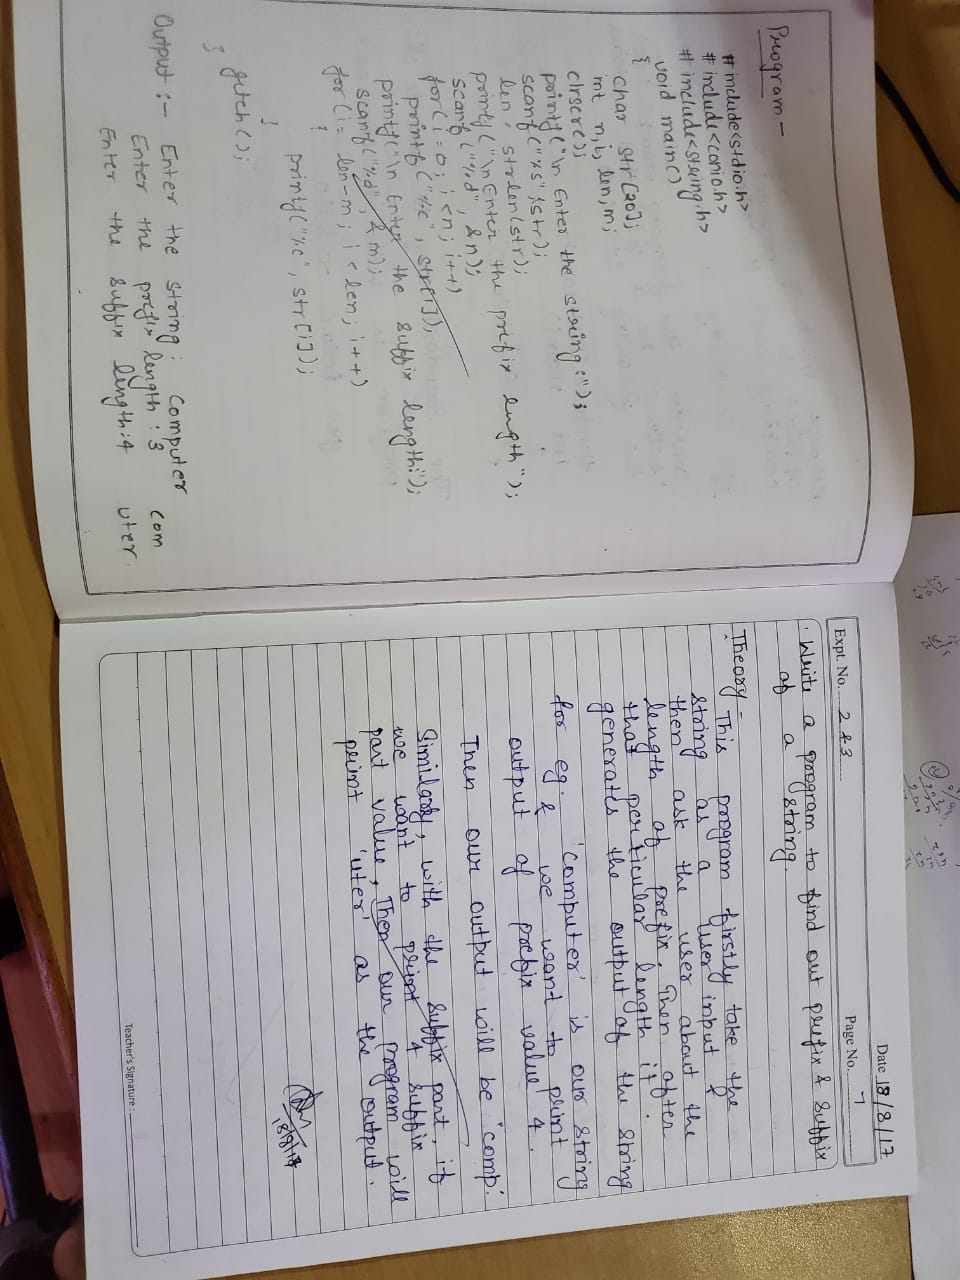 Program -
# include<stdio.h>
# include<conio.h>
# include<string.h>
void main()
{
char str[20];
int n, i, len, m;
clrscr();
printf("\n Enter the string:");
scanf("%s", str);
len = strlen(str);
printf("\n Enter the prefix length");
scanf("%d", &n);
for(i=0; i<n; i++)
printf("%c", str[i]);
printf("\n Enter the suffix length:");
scanf("%d", &m);
for(i= len-m; i<len; i++)
{
printf("%c", str[i]);
}
getch();
}
Output :- Enter the string: Computer
Enter the prefix length : 3 com
Enter the suffix length:4 uter.
Date 18/8/17
Expt. No. 2 & 3 Page No. 7
Write a program to find out prefix & suffix
of a string.
Theory - This program firstly take the
string as a user input &
then ask the user about the
length of prefix. Then after
that perticular length it
generates the output of the string
for eg. 'computer' is our string
& we want to print
output of prefix value 4.
Then our output will be 'comp'.
Similarly, with the suffix part, if
we want to print 4 suffix
part value, Then our program will
print 'uter' as the output.
Teacher's Signature :